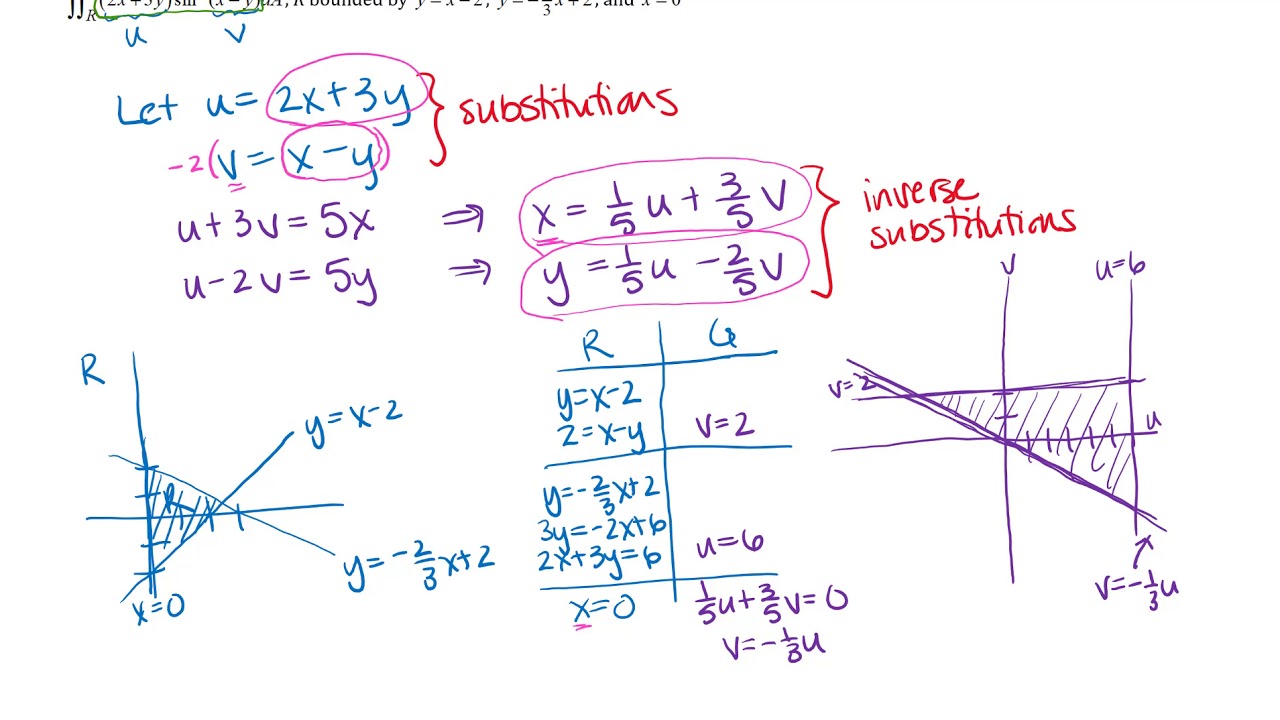 ∬R (2x+3y)sin (x−y)dA, R bounded by y = x − 2, y = −2/3x + 2, and x = 0
u v
Let u = 2x+3y } substitutions
-2(v = x-y)
u+3v = 5x ⇒ x = 1/5 u + 3/5 v } inverse substitutions
u-2v = 5y ⇒ y = 1/5 u - 2/5 v
R
y=x-2
R
y=-2/3x+2
x=0
R G
y=x-2
2=x-y v=2
y=-2/3x+2
3y=-2x+6
2x+3y=6 u=6
x=0 1/5u+3/5v=0
v=-1/3u
v u=6
v=2
u
v=-1/3u